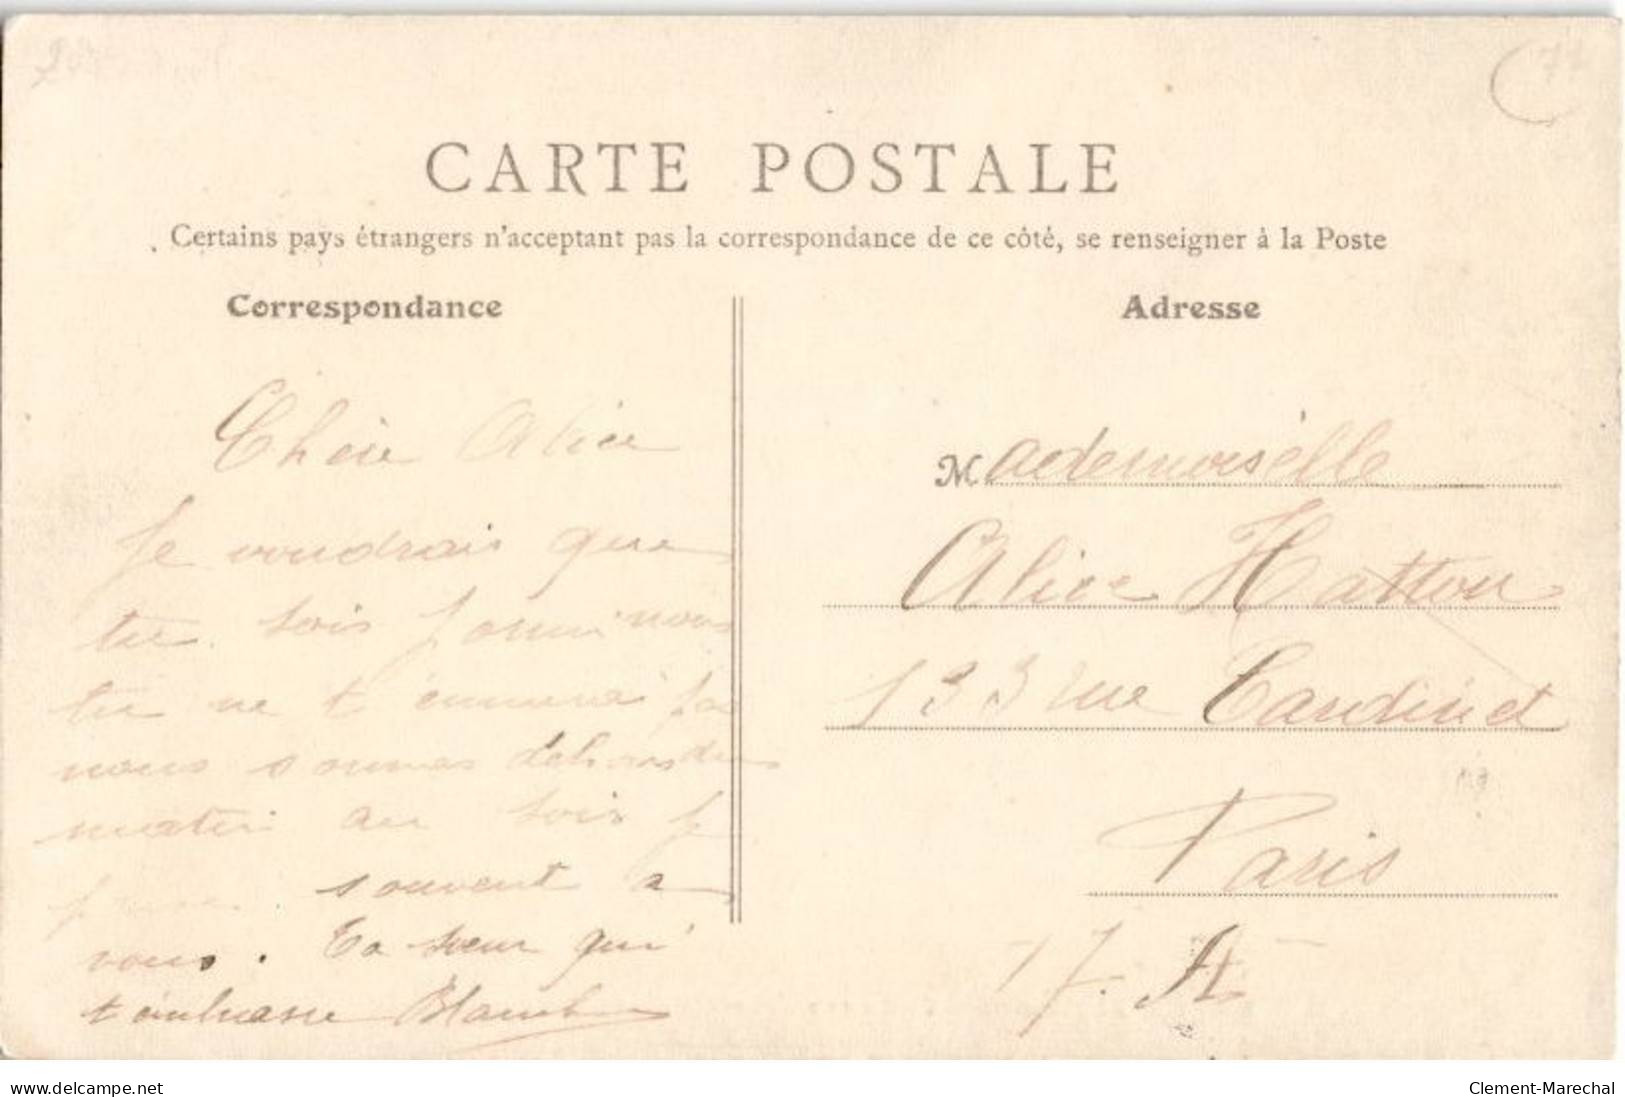 77
CARTE POSTALE
Certains pays étrangers n'acceptant pas la correspondance de ce côté, se renseigner à la Poste
Correspondance
Chère Alice
Je voudrais que
tu sois parmi nous
tu ne t'ennuierai pas
nous sommes dehors du
matin au soir je
pense souvent a
vous. Ta sœur qui
t'embrasse Blanche
Adresse
Mademoiselle
Alice Hatton
133 rue Cardinet
Paris
17. A
www.delcampe.net
Clement-Marechal